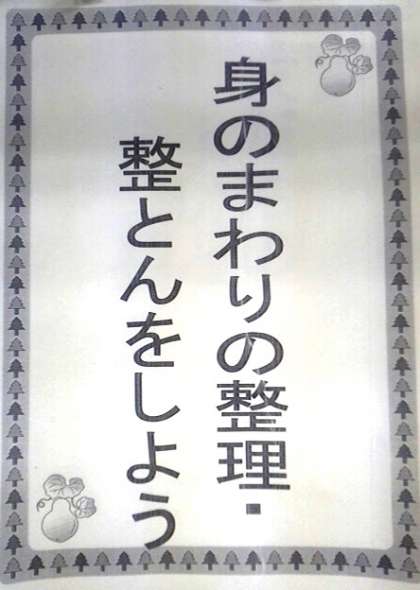 身のまわりの整理・
整とんをしよう